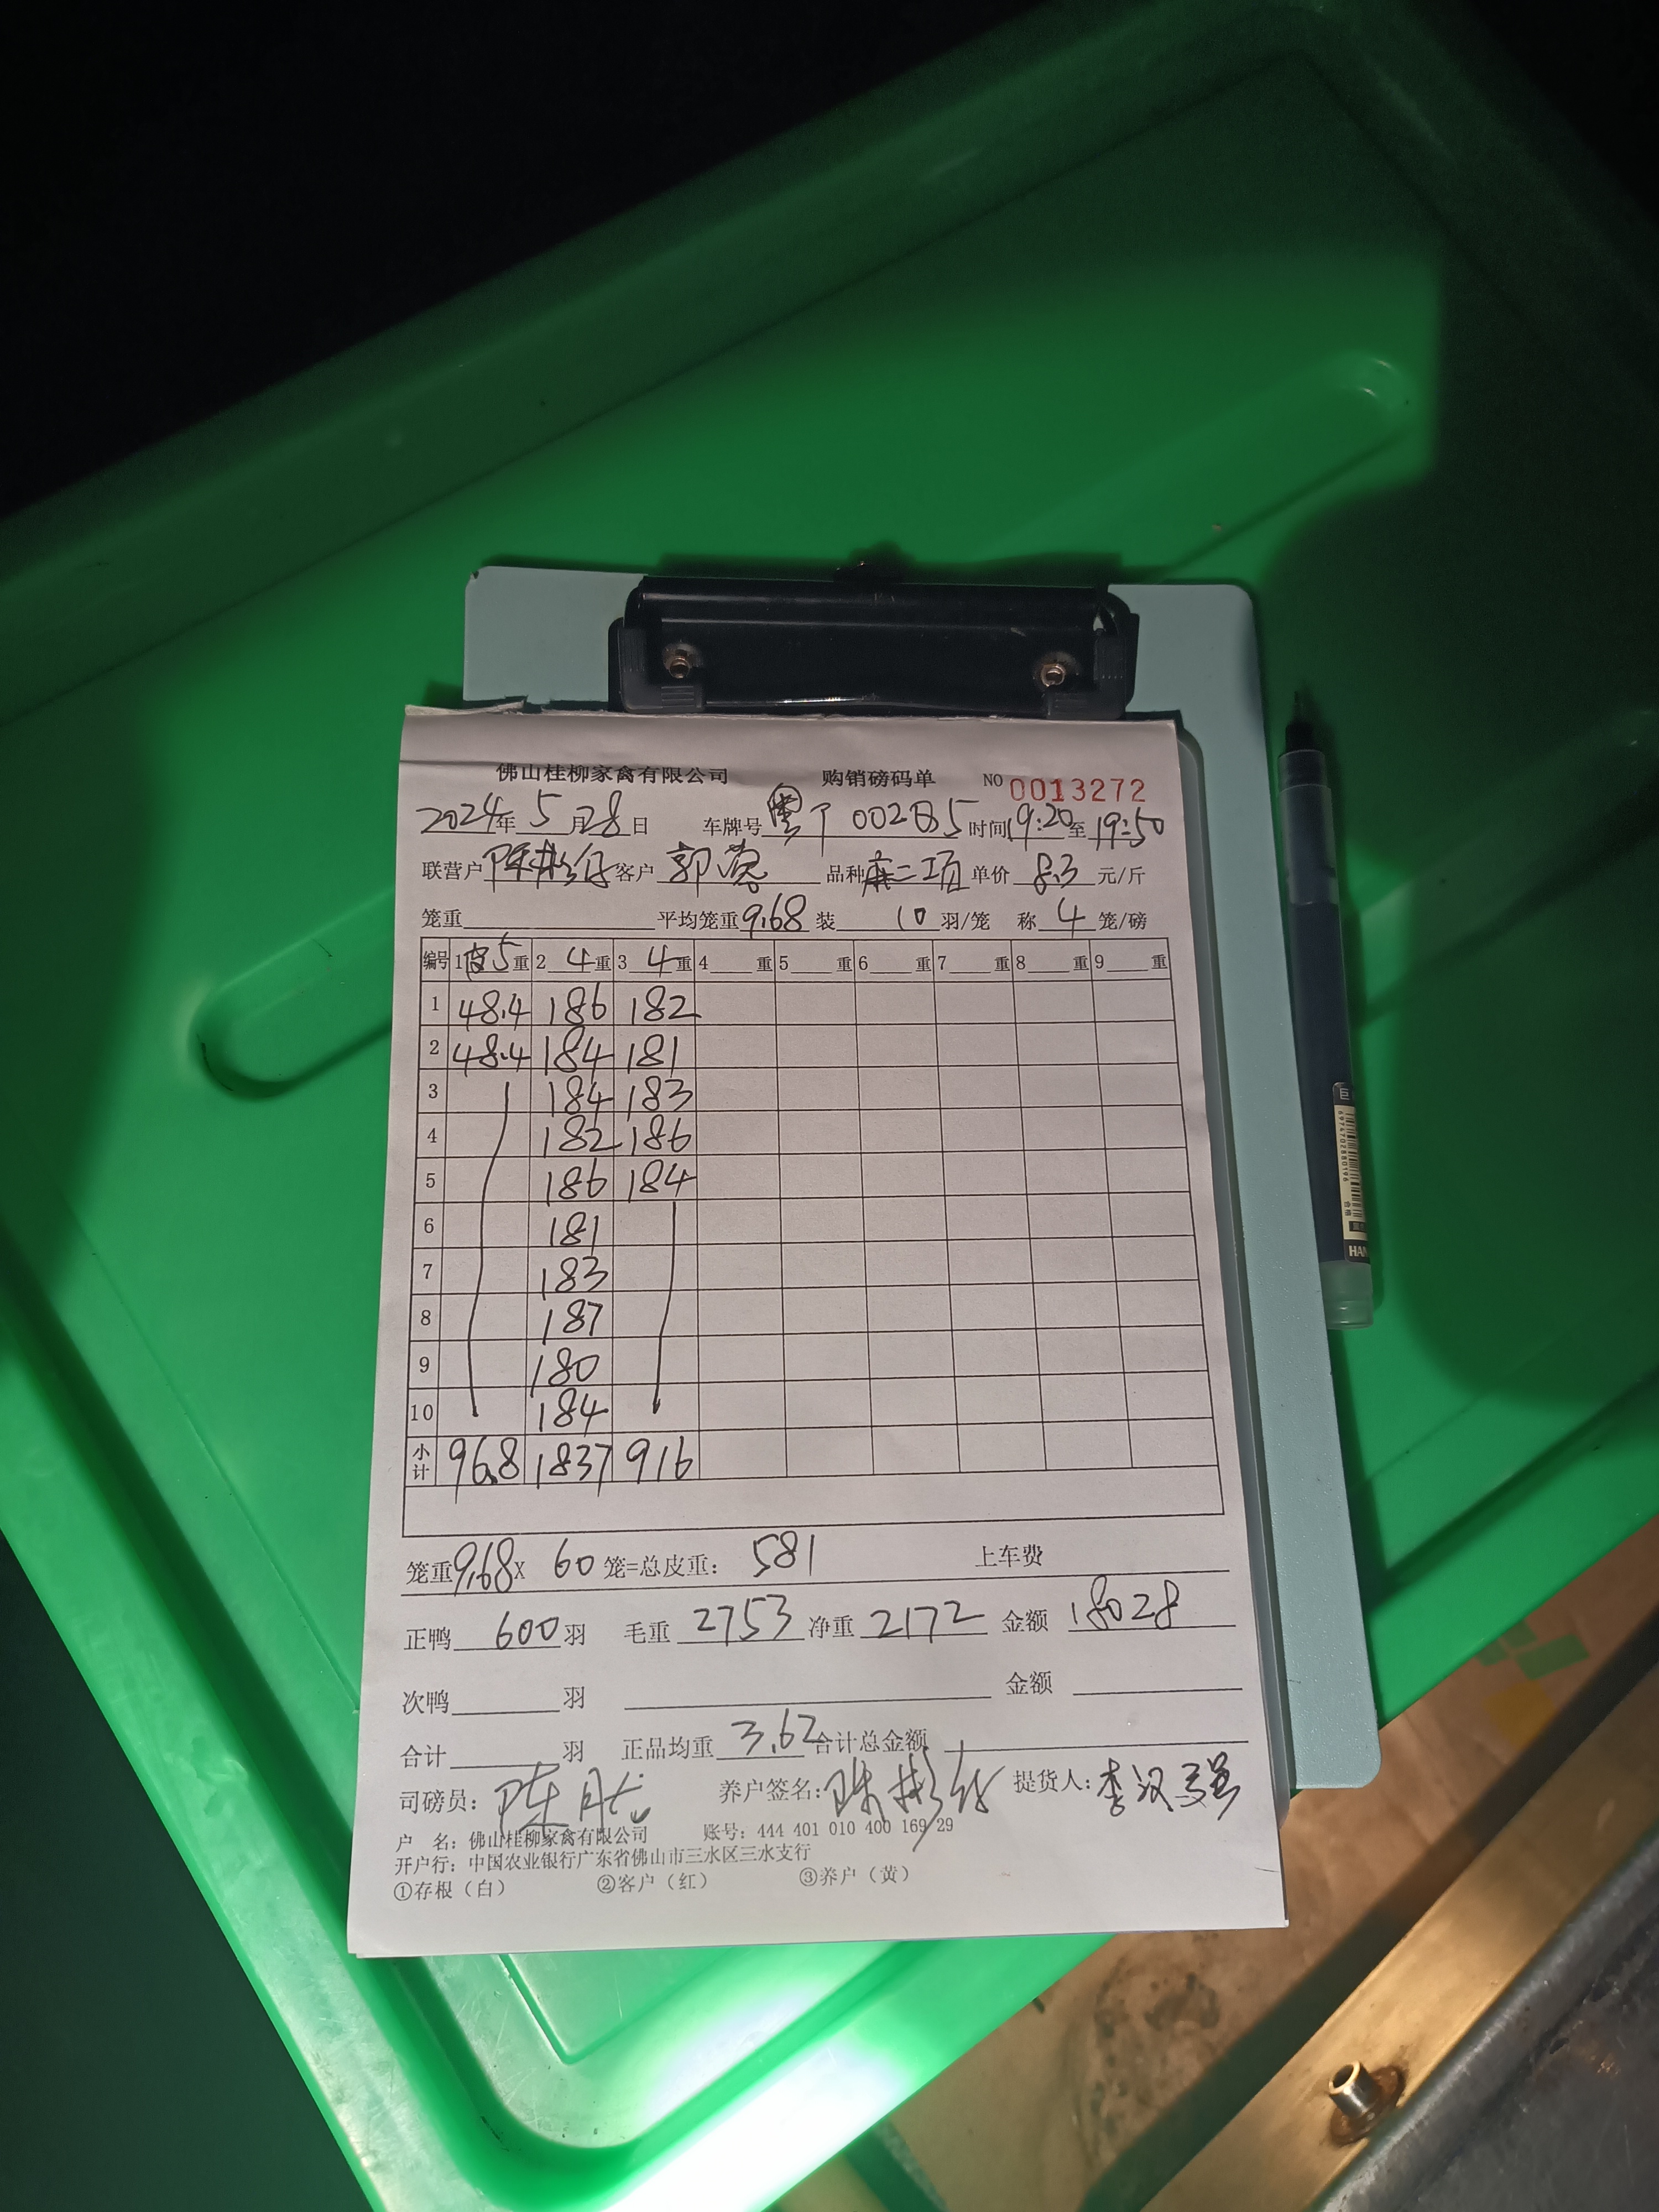 佛山桂柳家禽有限公司 购销磅码单 NO 0013272
2024年 5 月 28 日 车牌号 时间 19:20 至 19:50
联营户 陈彬仔 客户 郭 品种 麻二项 单价 8.3 元/斤
笼重 平均笼重 9.68 装 10 羽/笼 称 4 笼/磅
编号 1 皮5 重 2 4 重 3 4 重 4 重 5 重 6 重 7 重 8 重 9 重
1 48.4 186 182
2 48.4 184 181
3 184 183
4 182 186
5 186 184
6 181
7 183
8 187
9 180
10 184
小计 96.8 1837 916
笼重 9.68 X 60 笼=总皮重: 581 上车费
正鸭 600 羽 毛重 2753 净重 2172 金额 18028
次鸭 羽 金额
合计 羽 正品均重 3.62 合计总金额
司磅员: 陈 养户签名: 陈彬仔 提货人: 李汉强
户 名: 佛山桂柳家禽有限公司 账号: 444 401 010 400 169 29
开户行: 中国农业银行广东省佛山市三水区三水支行
①存根（白） ②客户（红） ③养户（黄）
巨
6974702880196
HAN